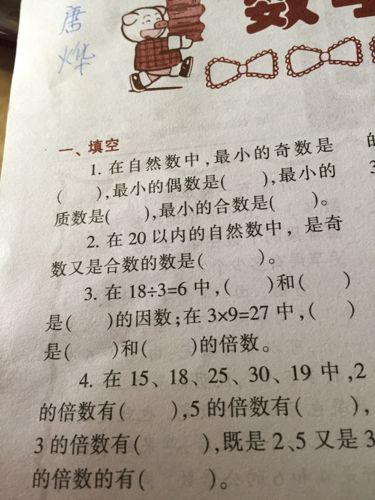 唐
烨
数
一、填空
1. 在自然数中,最小的奇数是
(    ),最小的偶数是(    ),最小的
质数是(    ),最小的合数是(    )。
2. 在20以内的自然数中，是奇
数又是合数的数是(    )。
3. 在18÷3=6中,(    )和(    )
是(    )的因数;在3×9=27中,(    )
是(    )和(    )的倍数。
4. 在15、18、25、30、19中,2
的倍数有(    ),5的倍数有(    ),
3的倍数有(    ),既是2、5又是3
的倍数的有(    )。